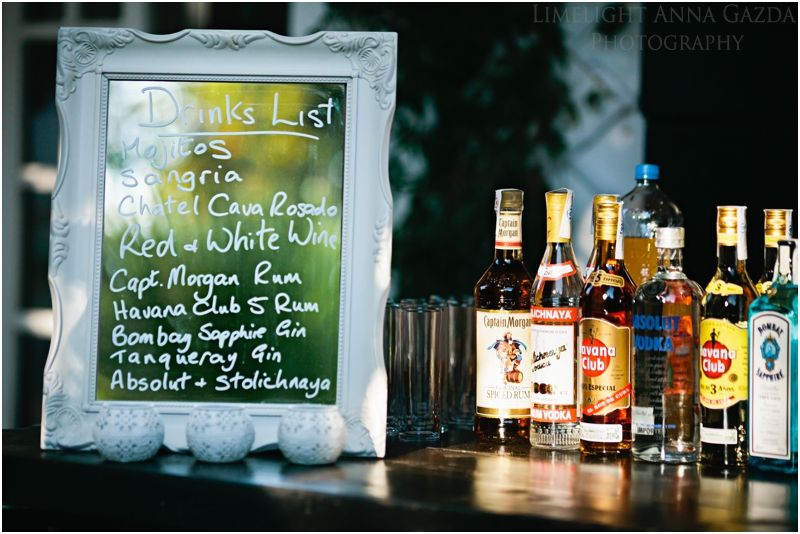 LIMELIGHT ANNA GAZDA
PHOTOGRAPHY
Drinks List
Mojitos
Sangria
Chatel Cava Rosado
Red + White Wine
Capt. Morgan Rum
Havana Club 5 Rum
Bombay Sapphie Gin
Tanqueray Gin
Absolut + Stolichnaya
Captain
Morgan
Captain Morgan
ORIGINAL
SPICED RUM
LICHNAYA
VODKA
5
avana
Club
ESPECIAL
ABSOLUT
VODKA
IMPORTED
avana
Club
3
AÑOS
BOMBAY
SAPPHIRE